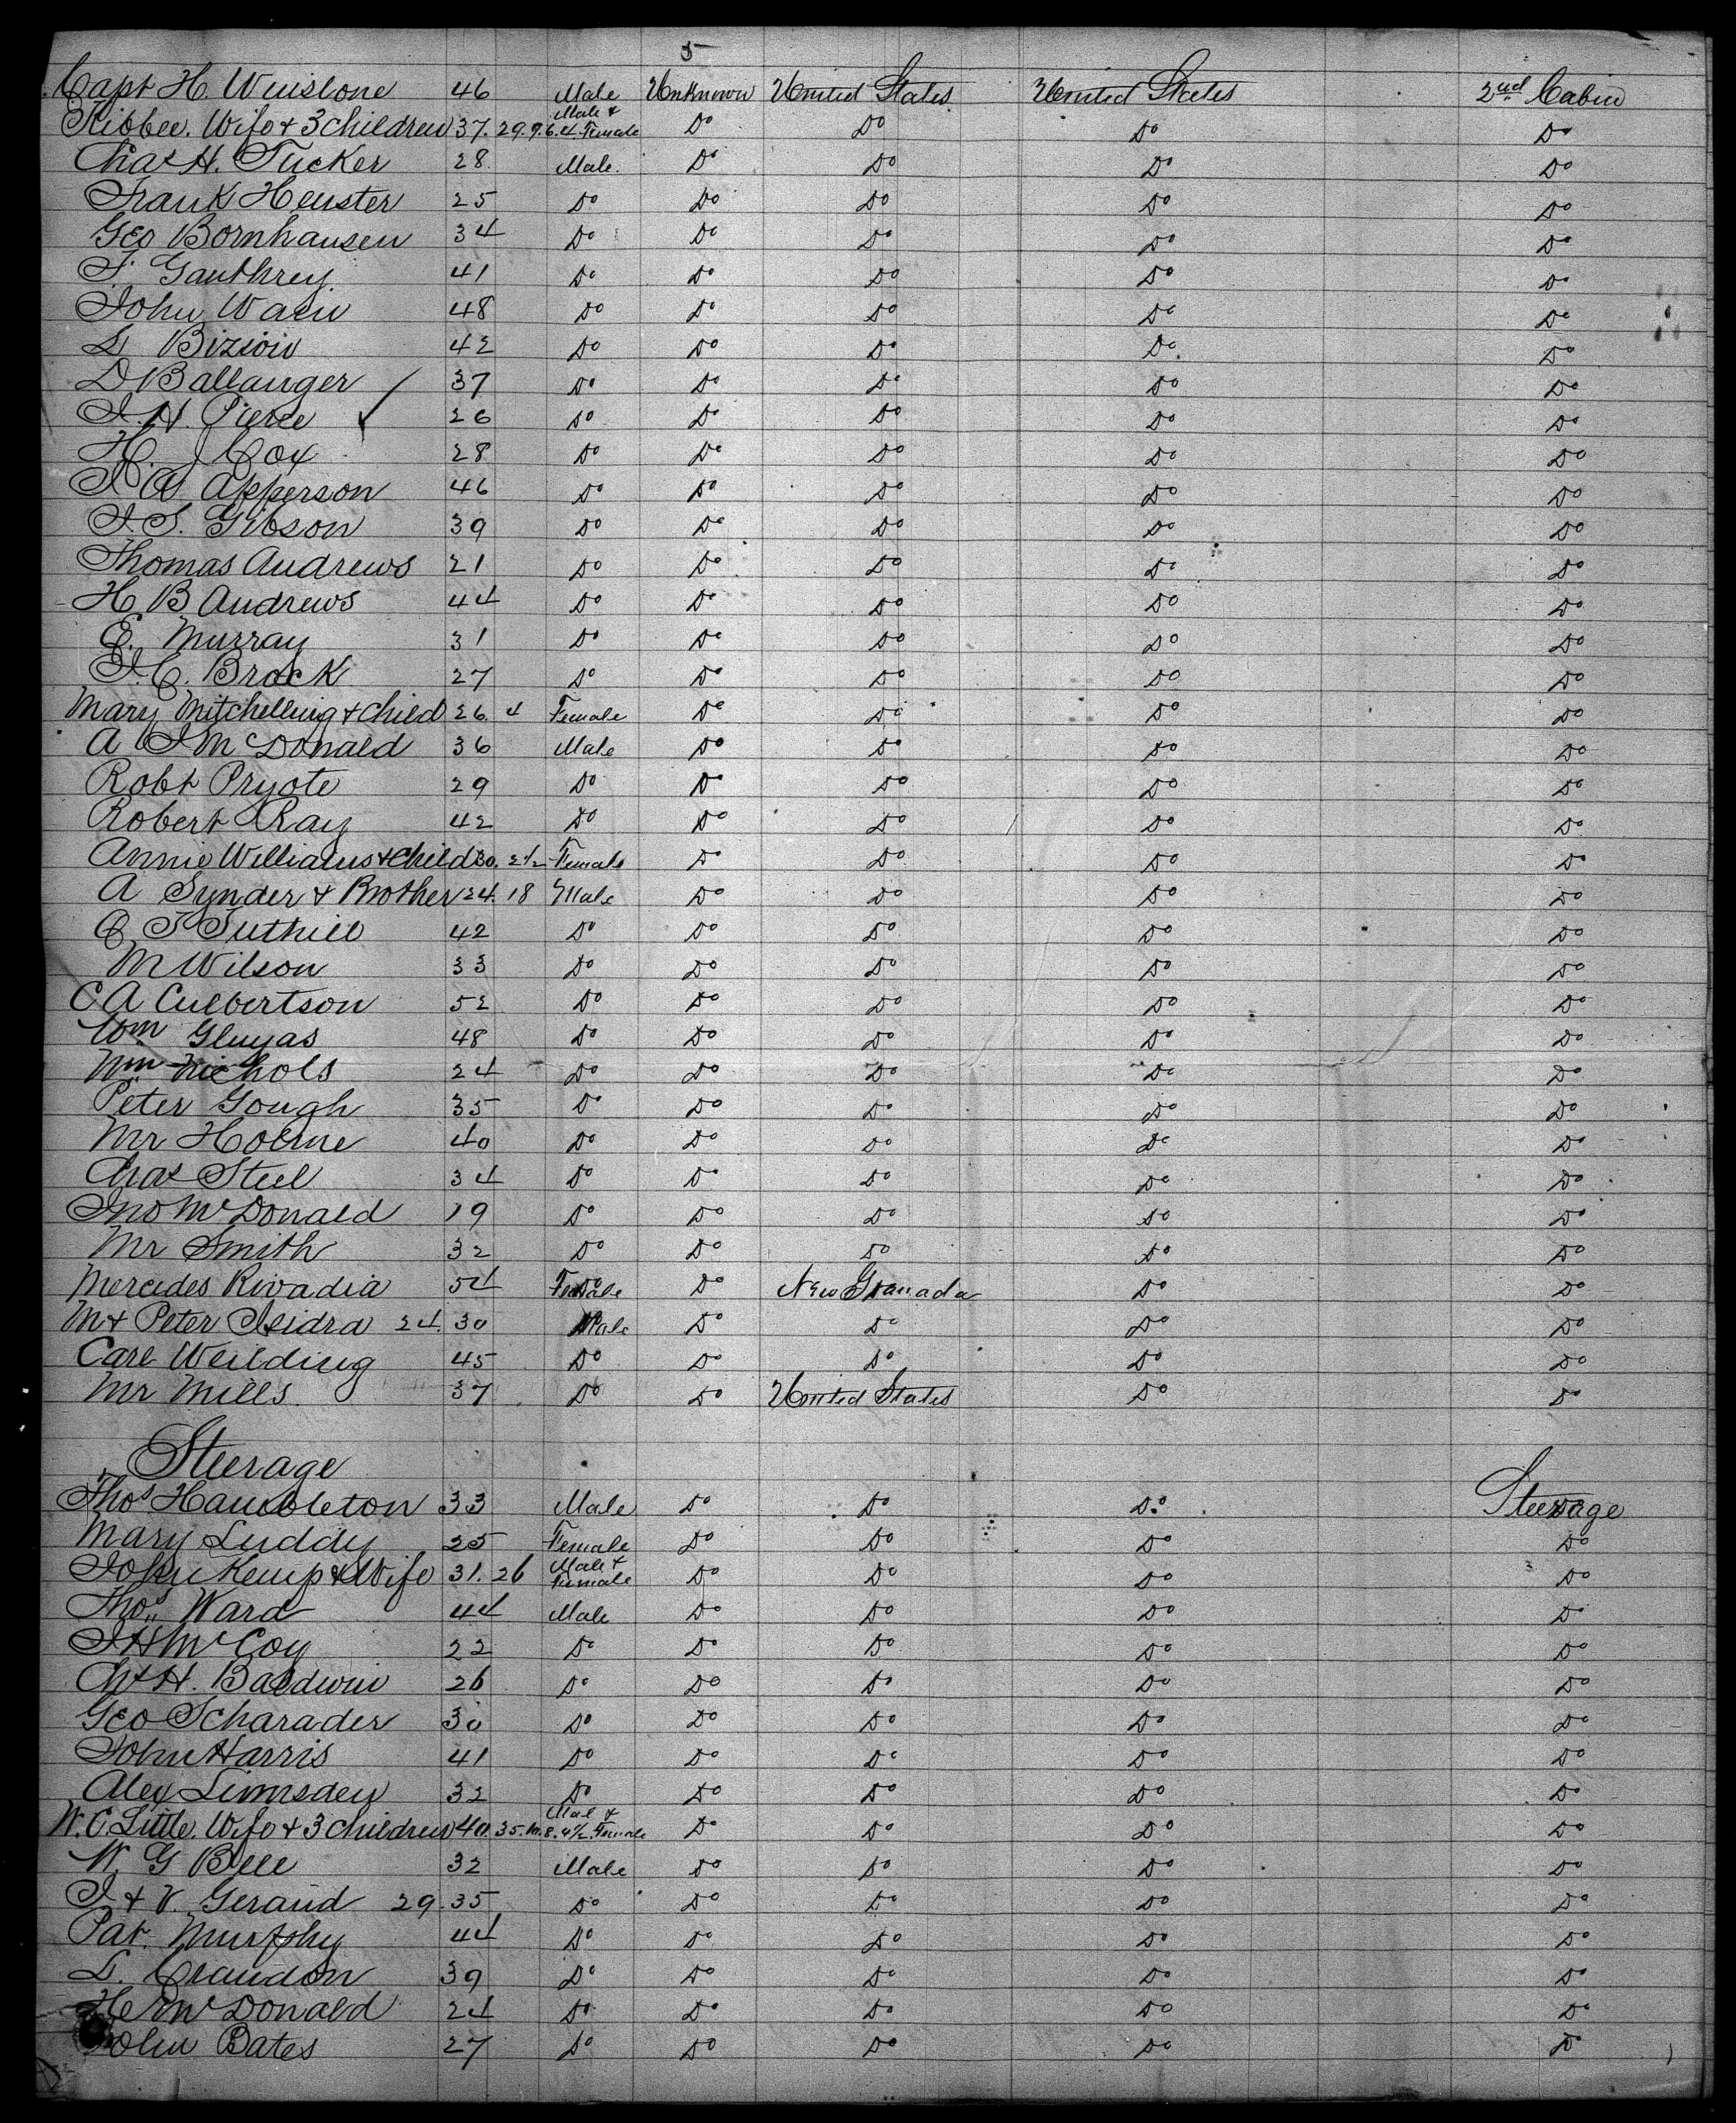 5
Capt H. Winslone 46 Male Unknown United States United States 2nd Cabin
Kibbee. Wife & 3 children 37. 29. 9. 6. 4. Male & Female Do Do Do Do
Chas H. Tucker 28 Male. Do Do Do Do
Frank Heuster 25 Do Do Do Do Do
Geo Bornhausen 34 Do Do Do Do Do
F. Gauthrey 41 Do Do Do Do Do
John Warn 48 Do Do Do Do Do
L Bizioiu 42 Do Do Do Do Do
D Ballanger 37 Do Do Do Do Do
J. H. Pierce 26 Do Do Do Do Do
H. J Cox 28 Do Do Do Do Do
J A Apperson 46 Do Do Do Do Do
J. S. Gibson 39 Do Do Do Do Do
Thomas Andrews 21 Do Do Do Do Do
H B Andrews 44 Do Do Do Do Do
E. Murray 31 Do Do Do Do Do
J. C. Brock 27 Do Do Do Do Do
Mary Mitchelling & Child 26. 4 Female Do Do Do Do
A J McDonald 36 Male Do Do Do Do
Robt Pryote 29 Do Do Do Do Do
Robert Ray 42 Do Do Do Do Do
Annie Williams & Child 30. 2½ Female Do Do Do Do
A Synder & Brother 24. 18 Male Do Do Do Do
C T Tuthill 42 Do Do Do Do Do
M Wilson 33 Do Do Do Do Do
C A Culbertson 52 Do Do Do Do Do
Wm Gluyas 48 Do Do Do Do Do
Wm Nichols 24 Do Do Do Do Do
Peter Gough 35 Do Do Do Do Do
Mr Holme 40 Do Do Do Do Do
Chas Steel 34 Do Do Do Do Do
Jno McDonald 19 Do Do Do Do Do
Mr Smith 32 Do Do Do Do Do
Mercedes Rivadia 54 Female Do New Granada Do Do
M & Peter Isidra 24. 30 Male Do Do Do Do
Carl Weilding 45 Do Do Do Do Do
Mr Mills 37 Do Do United States Do Do
Steerage
Thos Hambleton 33 Male Do Do Do Steerage
Mary Luddy 25 Female Do Do Do Do
John Kemp & Wife 31. 26 Male & Female Do Do Do Do
Thos Ward 44 Male Do Do Do Do
J H McCoy 22 Do Do Do Do Do
Chs H. Baldwin 26 Do Do Do Do Do
Geo Scharader 30 Do Do Do Do Do
John Harris 41 Do Do Do Do Do
Alex Limnsden 32 Do Do Do Do Do
W. C. Little. Wife & 3 children 40. 35. 10. 8. 4½. Male & Female Do Do Do Do
W G Bell 32 Male Do Do Do Do
J & V. Geraud 29. 35 Do Do Do Do Do
Pat. Murphy 44 Do Do Do Do Do
L. Craudon 39 Do Do Do Do Do
He McDonald 24 Do Do Do Do Do
John Bates 27 Do Do Do Do Do